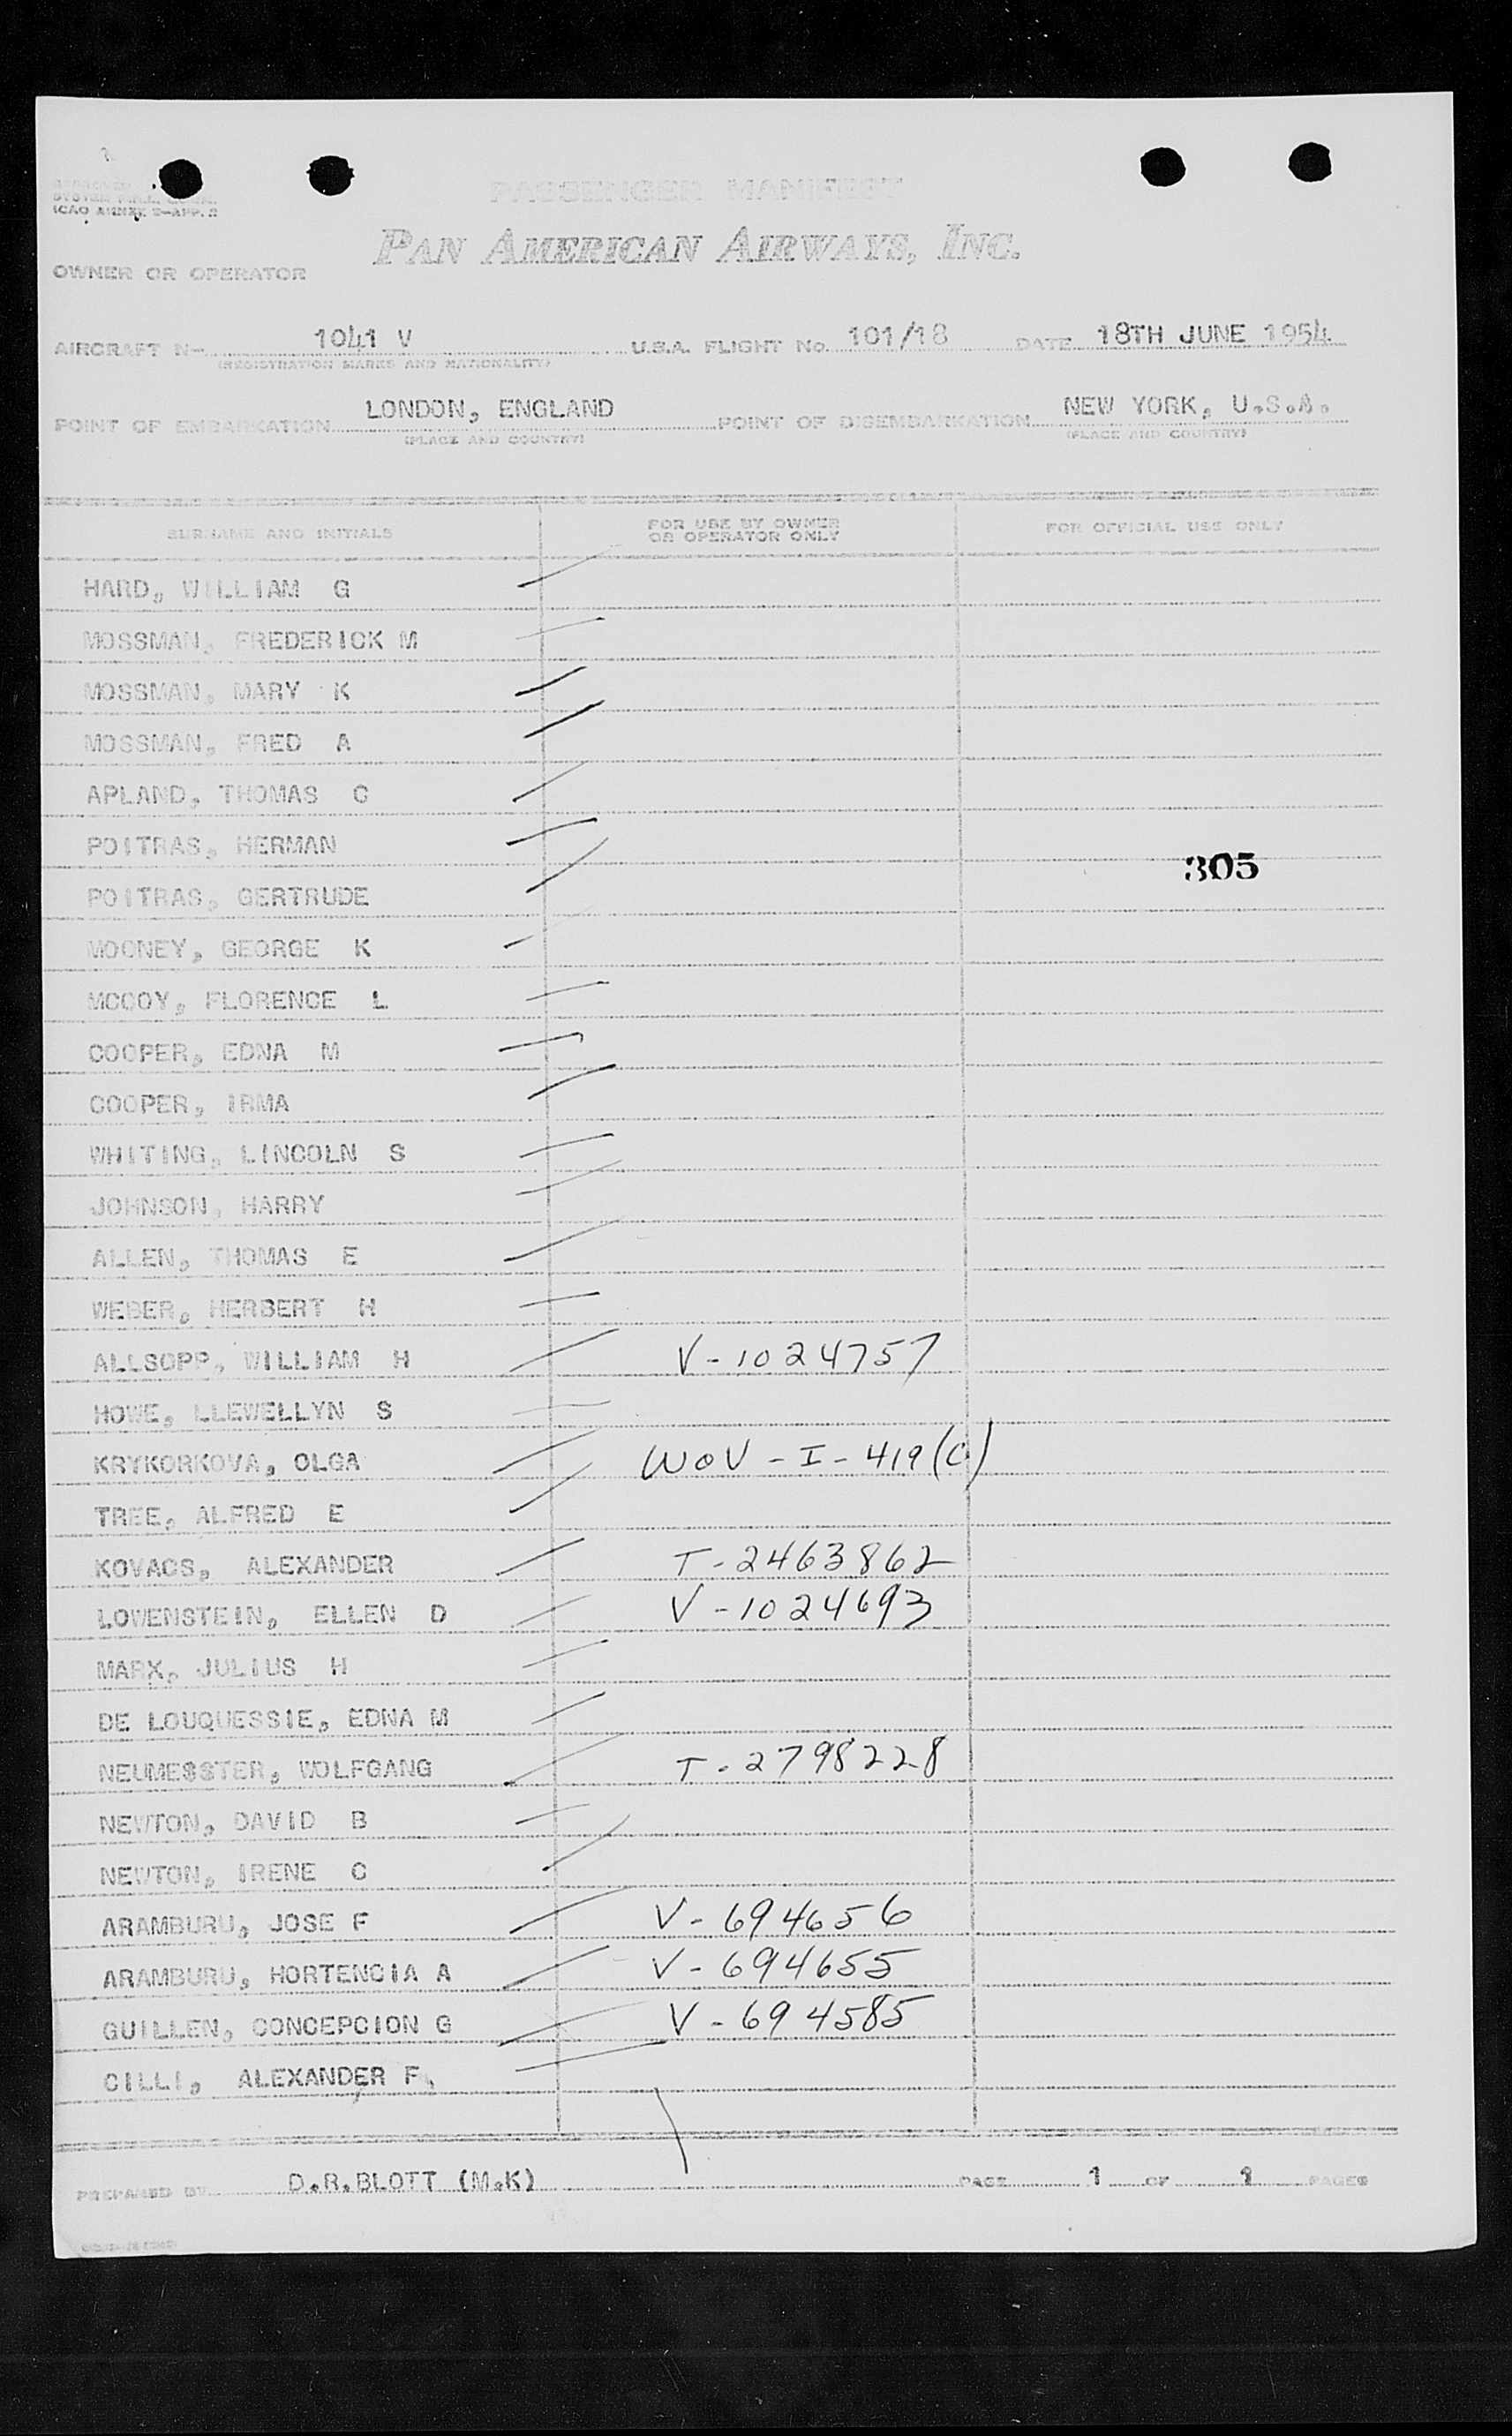 PASSENGER MANIFEST
(CAO ANNEX 9—APP. 2
PAN AMERICAN AIRWAYS, INC.
OWNER OR OPERATOR
AIRCRAFT N- 1041 V U.S.A. FLIGHT No. 101/18 DATE 18TH JUNE 1954
(REGISTRATION MARKS AND NATIONALITY)
POINT OF EMBARKATION LONDON, ENGLAND POINT OF DISEMBARKATION NEW YORK, U.S.A.
(PLACE AND COUNTRY) (PLACE AND COUNTRY)
SURNAME AND INITIALS FOR USE BY OWNER OR OPERATOR ONLY FOR OFFICIAL USE ONLY
HARD, WILLIAM G
MOSSMAN, FREDERICK M
MOSSMAN, MARY K
MOSSMAN, FRED A
APLAND, THOMAS C
POITRAS, HERMAN
305
POITRAS, GERTRUDE
MOONEY, GEORGE K
MCCOY, FLORENCE L
COOPER, EDNA M
COOPER, IRMA
WHITING, LINCOLN S
JOHNSON, HARRY
ALLEN, THOMAS E
WEBER, HERBERT H
ALLSOPP, WILLIAM H V-1024757
HOWE, LLEWELLYN S
KRYKORKOVA, OLGA WOV-I-419(C)
TREE, ALFRED E
KOVACS, ALEXANDER T-2463862
LOWENSTEIN, ELLEN D V-1024693
MARX, JULIUS H
DE LOUQUESSIE, EDNA M
NEUMESSTER, WOLFGANG T-2798228
NEWTON, DAVID B
NEWTON, IRENE C
ARAMBURU, JOSE F V-694656
ARAMBURU, HORTENCIA A V-694655
GUILLEN, CONCEPCION G V-694585
CILLI, ALEXANDER F,
PREPARED BY D.R.BLOTT (M.K) PAGE 1 OF 1 PAGES